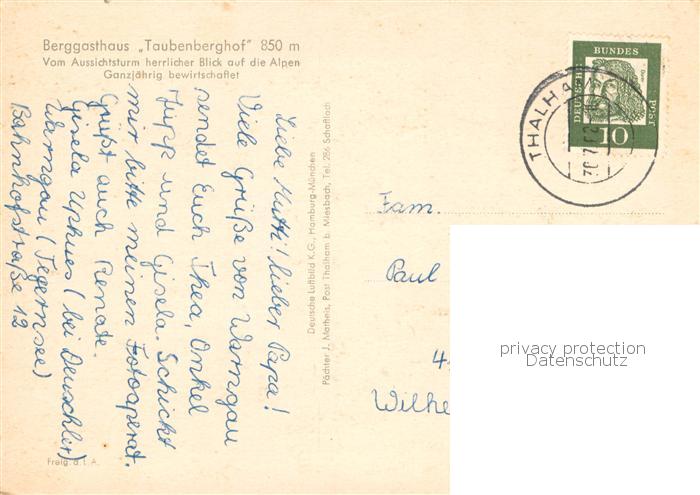 Berggasthaus „Taubenberghof“ 850 m
Vom Aussichtsturm herrlicher Blick auf die Alpen
Ganzjährig bewirtschaftet
Liebe Mutti! Lieber Papa!
Viele Grüße von Warngau
sendet Euch Thea, Onkel
Jupp und Gisela. Schickt
mir bitte meinen Fotoaperat.
Grüßt auch Renate.
Gisela Upkues (bei Deuschler)
Warngau (Tegernsee)
Bahnhofstraße 12
Freig. d. l. A.
Deutsche Luftbild K.G., Hamburg-München
Pächter J. Matheis, Post Thalham b. Miesbach, Tel. 286 Schaftlach
DEUTSCHE BUNDESPOST
10
THALHA
Fam.
Paul
4
Wilhe
privacy protection
Datenschutz